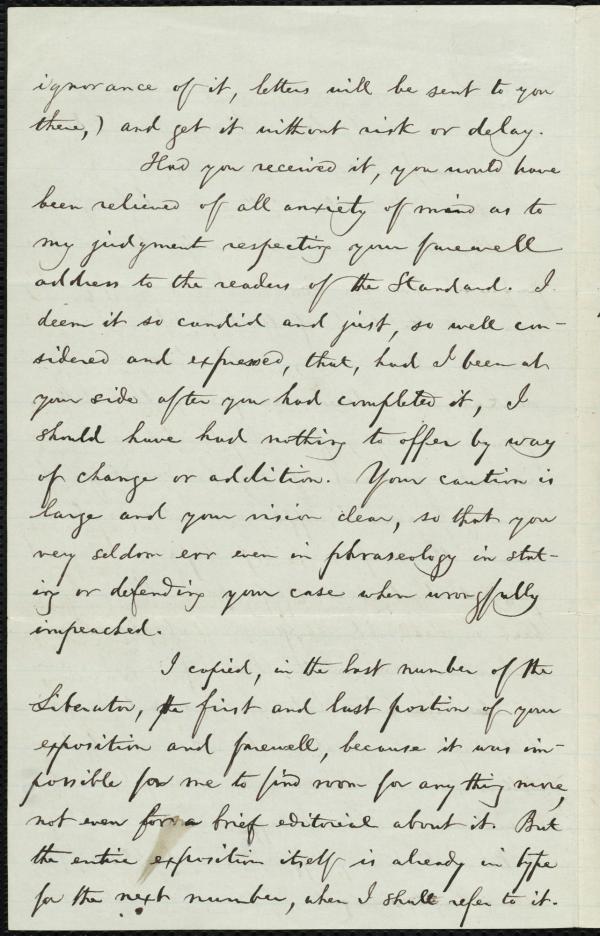 ignorance of it, letters will be sent to you
there,) and get it without risk or delay.
Had you received it, you would have
been relieved of all anxiety of mind as to
my judgment respecting your farewell
address to the readers of the Standard. I
deem it so candid and just, so well con-
sidered and expressed, that, had I been at
your side after you had completed it, I
should have had nothing to offer by way
of change or addition. Your caution is
large and your vision clear, so that you
very seldom err even in phraseology in stat-
ing or defending your case when wrongfully
impeached.
I copied, in the last number of the
Liberator, the first and last portion of your
exposition and farewell, because it was im-
possible for me to find room for any thing more,
not even for a brief editorial about it. But
the entire exposition itself is already in type
for the next number, when I shall refer to it.